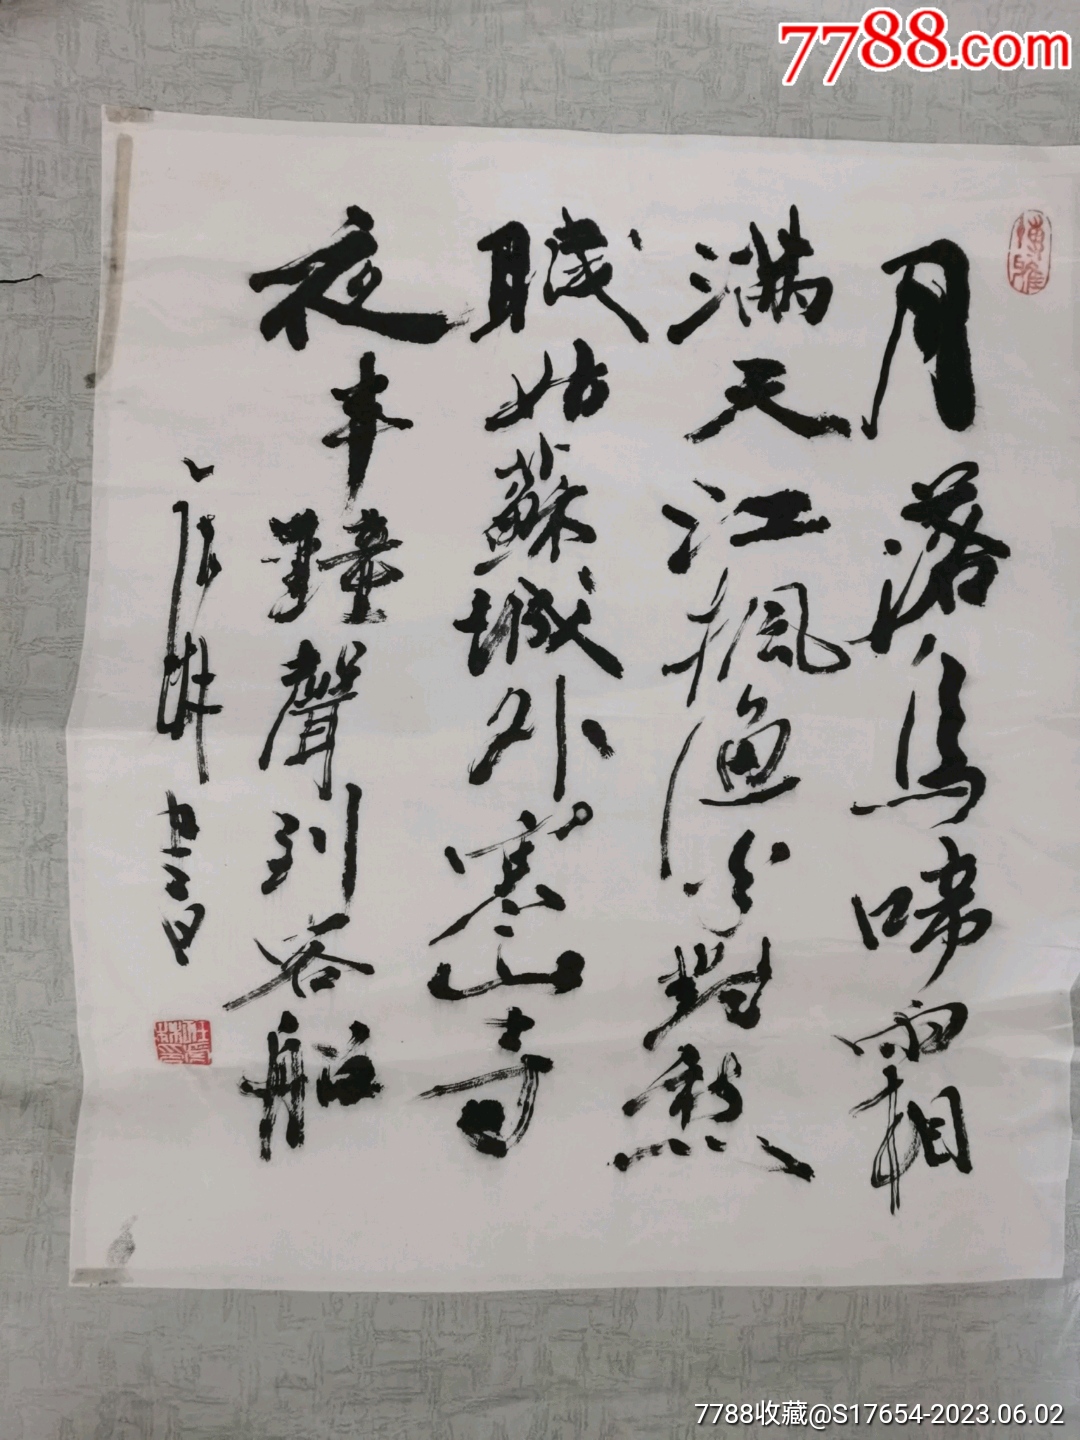 7788.com
博雅
月落烏啼霜
滿天江楓漁火對愁
眠姑蘇城外寒山寺
夜半鐘聲到客船
7788收藏@S17654-2023.06.02